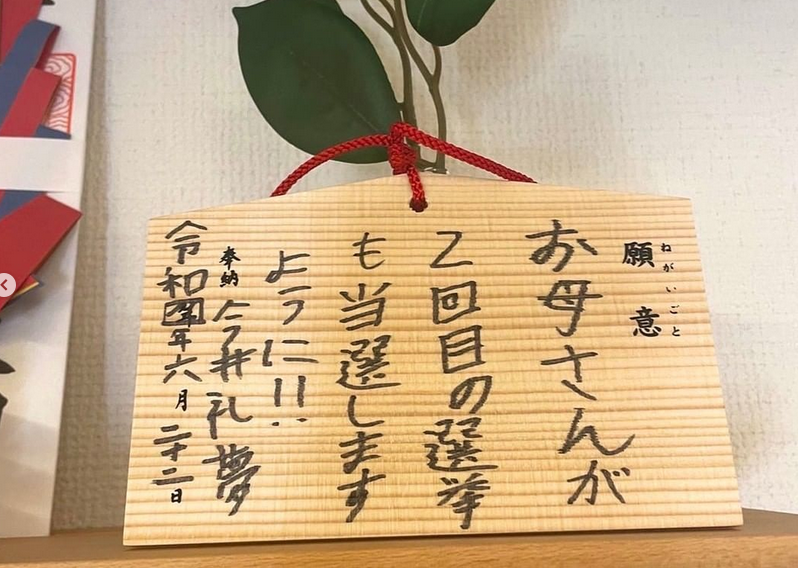 願意
ねがいごと
お母さんが
2回目の選挙
も当選します
ように!!
奉納 今井礼夢
令和四年六月二十二日